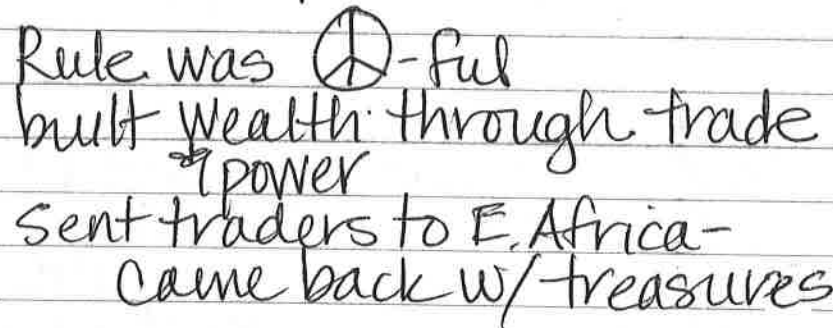 Rule was ☮-ful
built wealth through trade
& power
sent traders to E. Africa-
came back w/ treasures